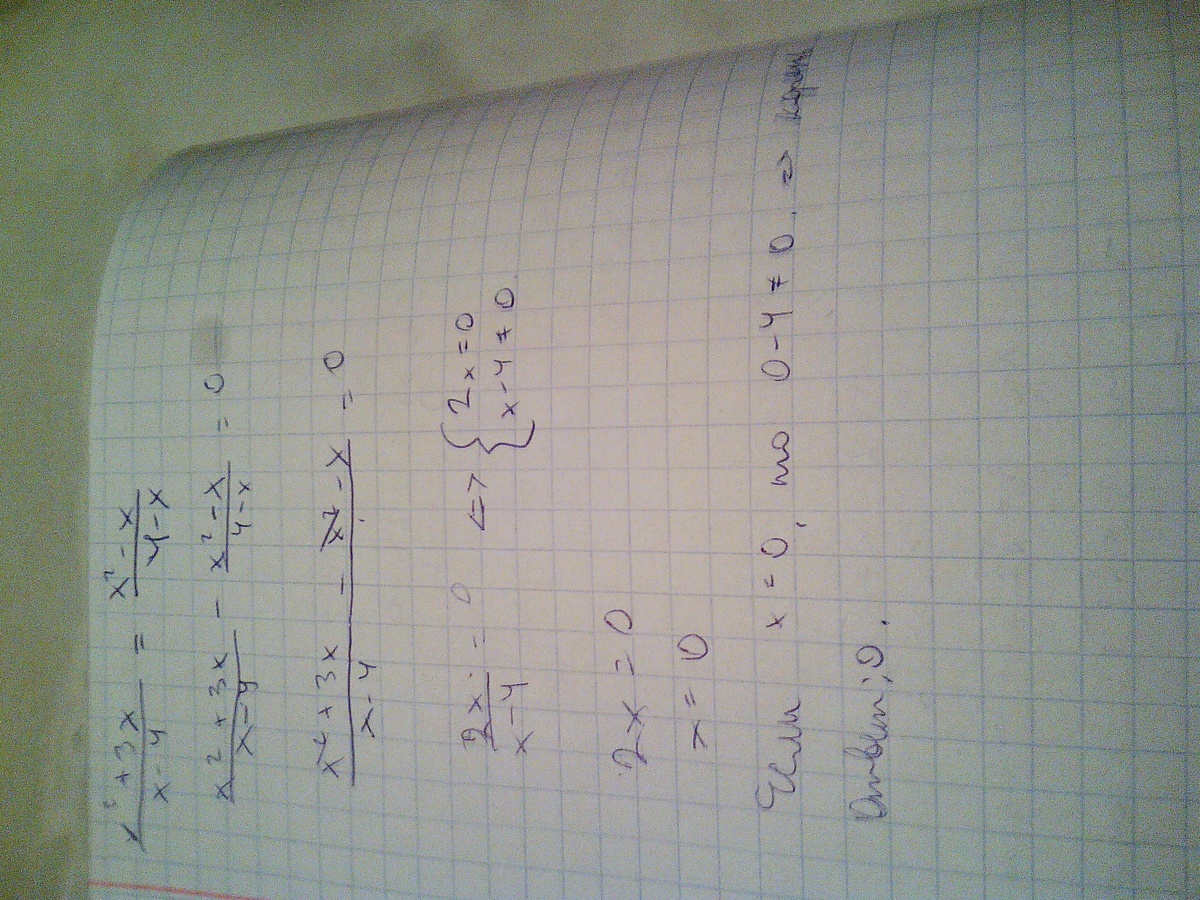 x² + 3x / x - 4 = x² - x / 4 - x
x² + 3x / x - 4 - x² - x / 4 - x = 0
x² + 3x - x² - x / x - 4 = 0
2x / x - 4 = 0 <=> { 2x = 0 x - 4 ≠ 0
2x = 0
x = 0
Если x = 0, то 0 - 4 ≠ 0. => корень
Ответ; 0.